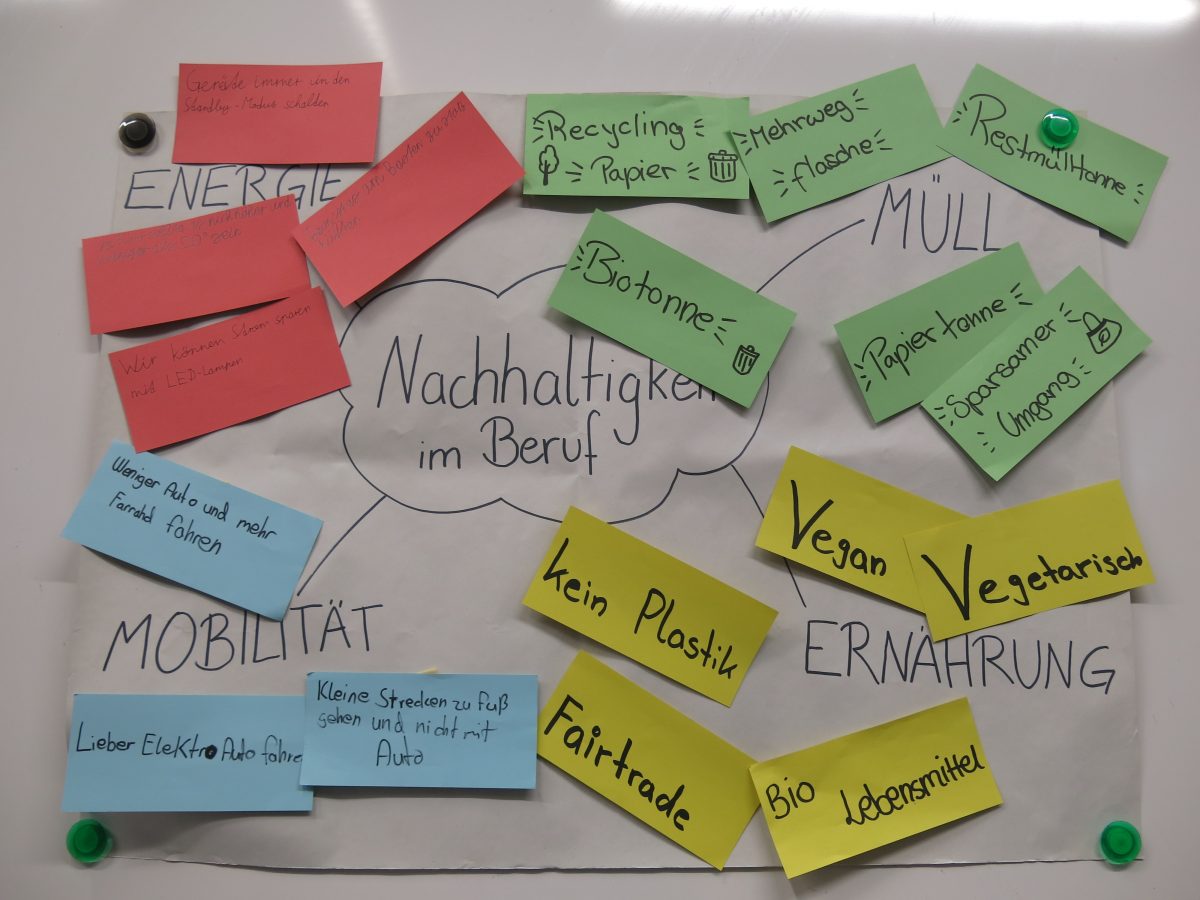 Geräte immer in den
Standby-Modus schalden
ENERGIE
Wir können Strom sparen
mid LED-Lampen
Recycling
Papier
Mehrweg
flasche
Restmülltonne
MÜLL
Biotonne
Papiertonne
Sparsamer
Umgang
Nachhaltigkei
im Beruf
Weniger Auto und mehr
Farrahd fahren
MOBILITÄT
Lieber Elektro Auto fahre
Kleine Strecken zu fuß
gehen und nicht mit
Auto
Vegan
Vegetarisch
kein Plastik
ERNÄHRUNG
Fairtrade
Bio
Lebensmittel